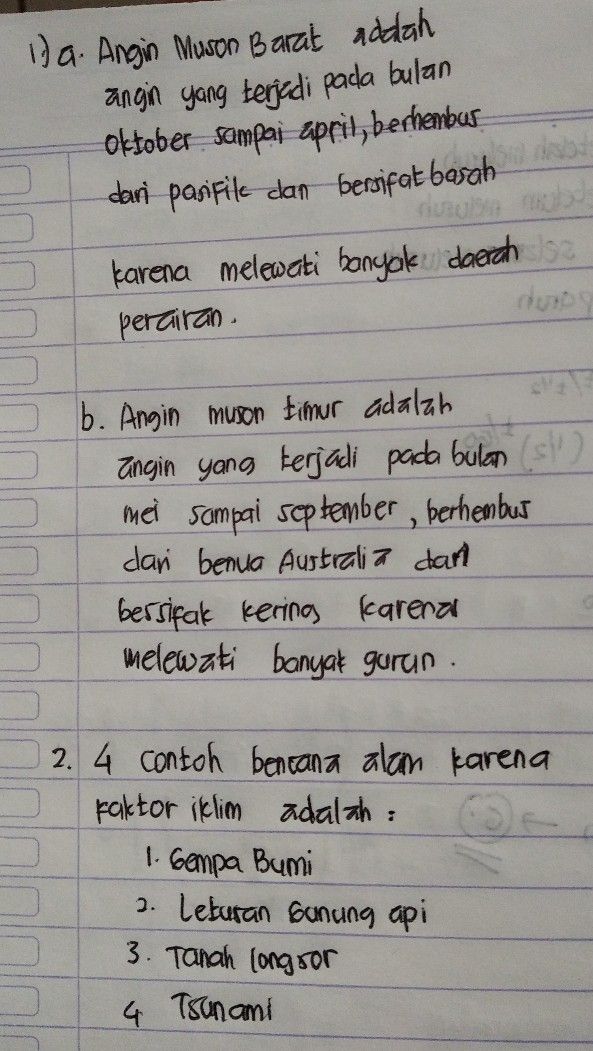 1.) a. Angin Muson Barat adalah
angin yang terjadi pada bulan
Oktober sampai april, berhembus
dari pasifik dan bersifat basah
karena melewati banyak daerah
perairan.
b. Angin muson timur adalah
angin yang terjadi pada bulan
mei sampai september, berhembus
dari benua Australia dan
bersifak kering karena
melewati banyak gurun.
2. 4 contoh bencana alam karena
faktor iklim adalah :
1. Gempa Bumi
2. Letusan Gunung api
3. Tanah longsor
4 Tsunami